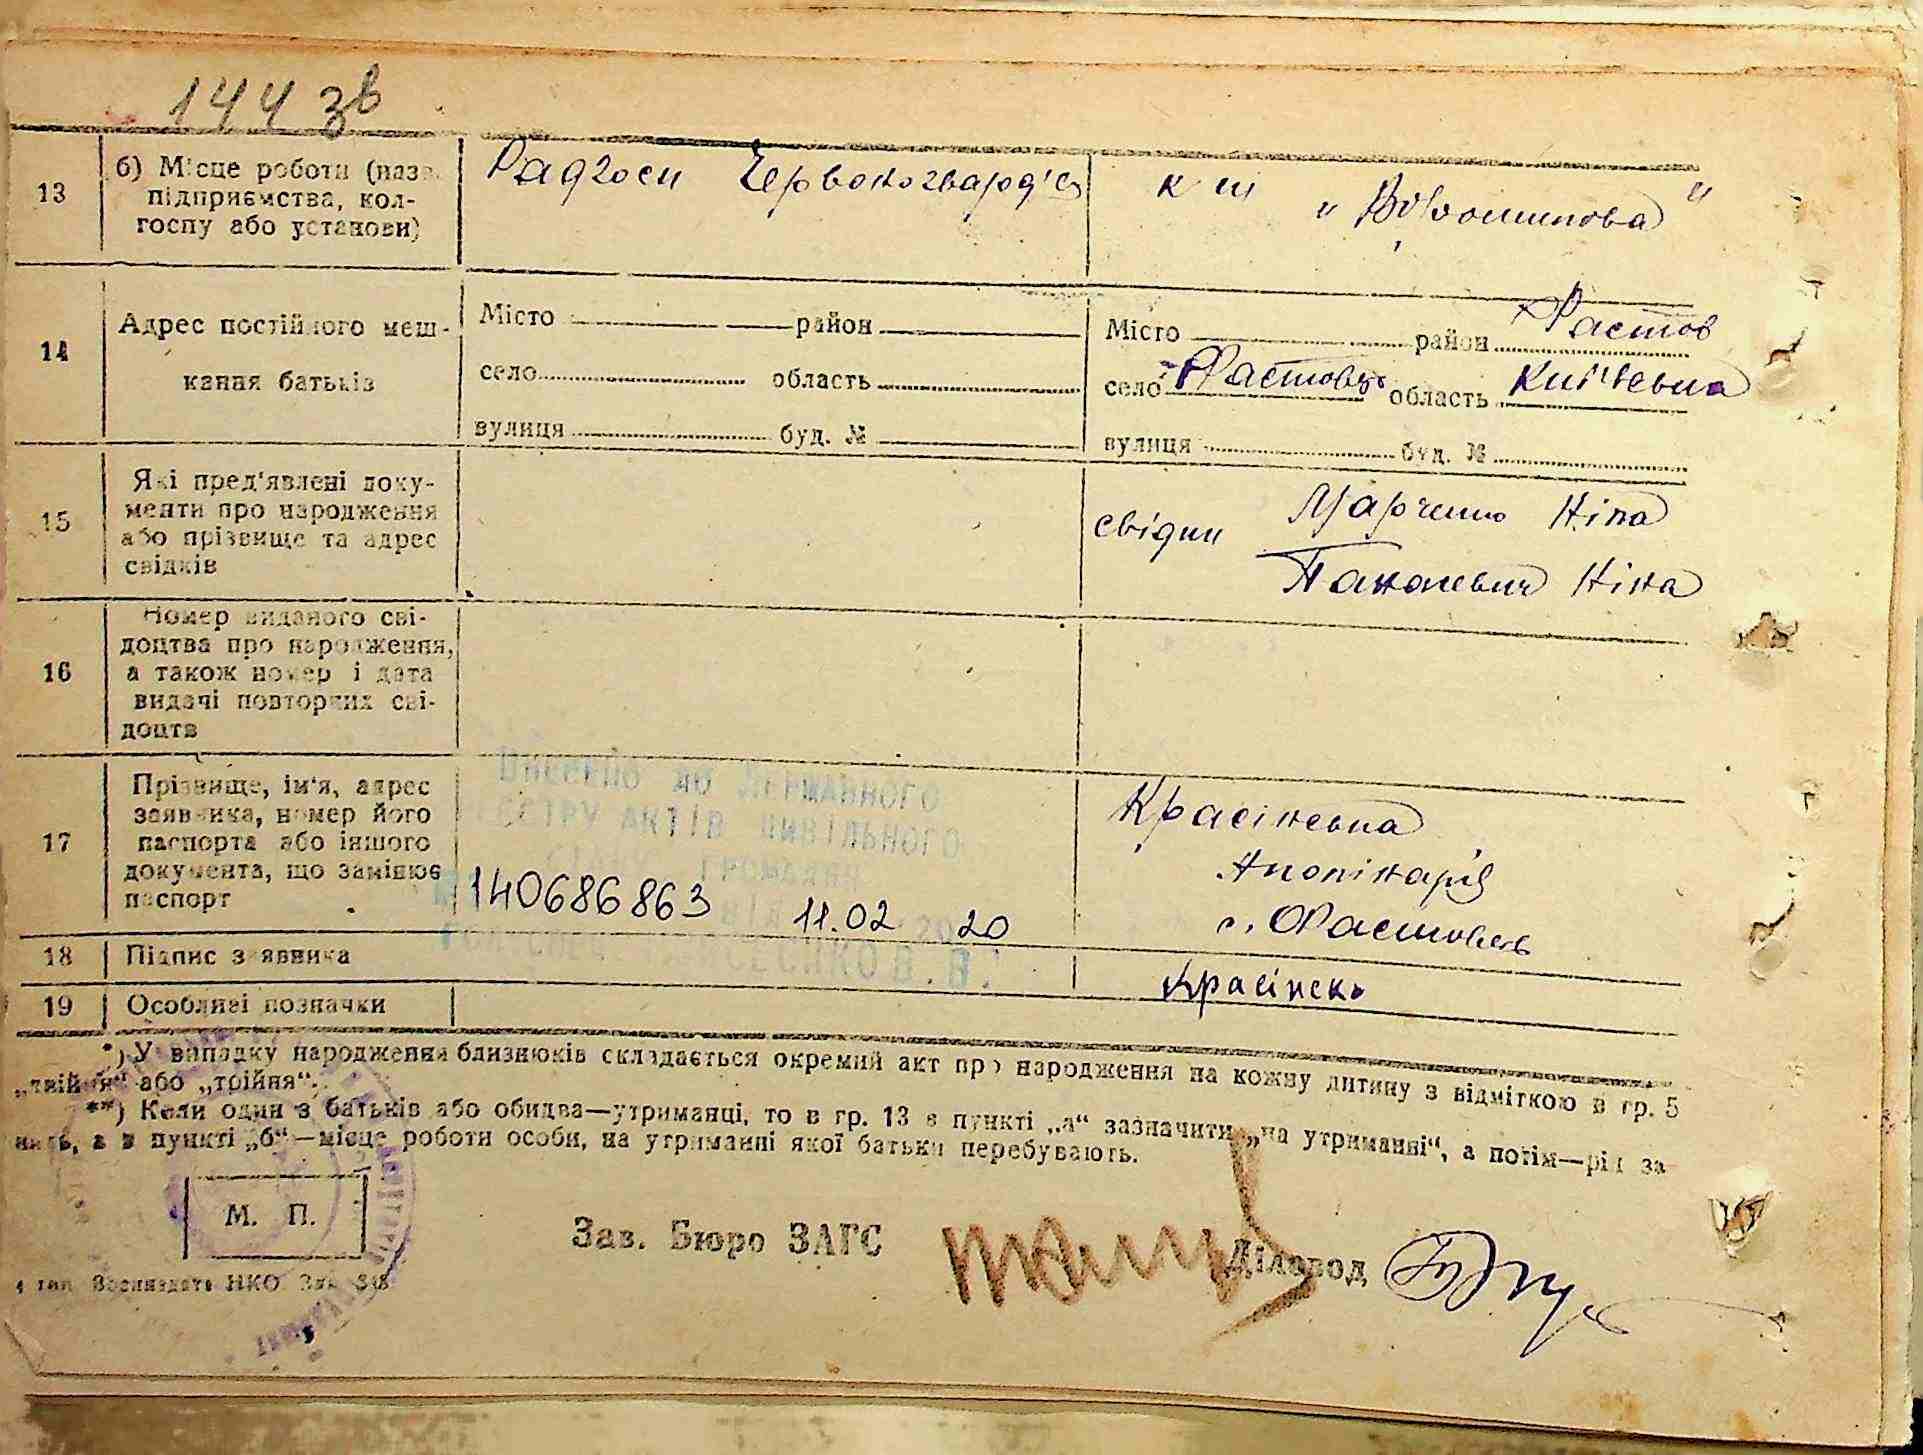 144 зв
13
б) Місце роботи (назв.
підприємства, кол-
госпу або установи)
Радгосп Червоногвард'єц
к-п „Ворошилова"
14
Адрес постійного меш-
кання батьків
Місто район
село область
вулиця буд. №
Місто район Фастов
село Фастовець область Київська
вулиця буд. №
15
Які пред'явлені доку-
менти про народження
або прізвище та адрес
свідків
свідки Марченко Ніна
Ніна
16
Номер виданого сві-
доцтва про народження,
а також номер і дата
видачі повторних сві-
доцтв
17
Прізвище, ім'я, адрес
заявника, номер його
паспорта або іншого
документа, що замінює
паспорт
внесено до державного
реєстру актів цивільного
стану громадян
140686863 від 11.02 2020
Красінська
Аполінарія
с. Фастовець
18
Підпис заявника
Красінськ
19
Особливі позначки
*) У випадку народження близнюків складається окремий акт про народження на кожну дитину з відміткою в гр. 5
„двійня“ або „трійня“.
**) Коли один з батьків або обидва—утриманці, то в гр. 13 в пункті „а“ зазначити „на утриманні“, а потім—рід за-
нять, а в пункті „б“—місце роботи особи, на утриманні якої батьки перебувають.
М. П.
Зав. Бюро ЗАГС
Діловод
4 тип. Воєнвидата НКО. Зам. 348